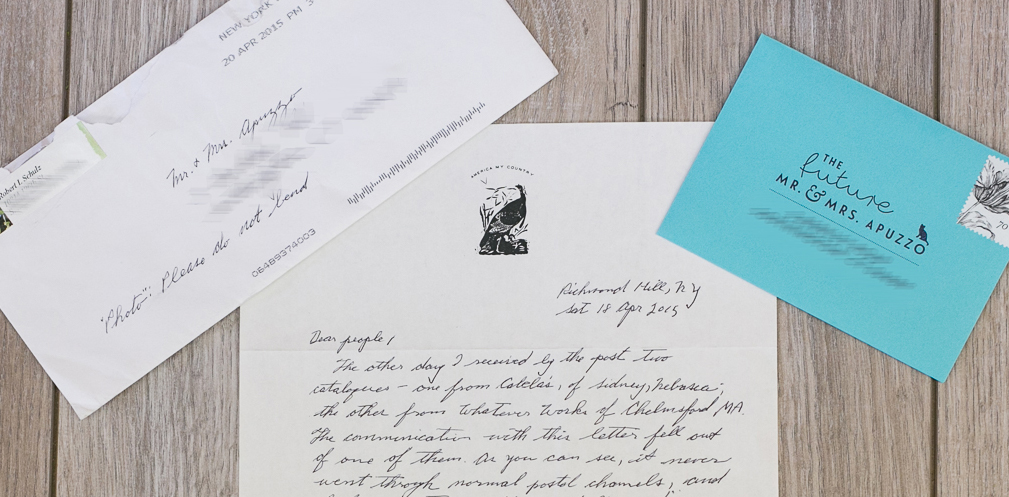 NEW YORK
20 APR 2015 PM 3
Robert L Schulz
Mr. & Mrs. Apuzzo
"Photo": Please do not bend
06489374003
AMERICA MY COUNTRY
Richmond Hill, NY
Sat 18 Apr 2015
Dear people,
The other day I received by the post two
catalogues – one from Cabela's, of Sidney, Nebraska;
the other from Whatever Works of Chelmsford MA.
The communication with this letter fell out
of one of them. As you can see, it never
went through normal postal channels; and
THE
future
MR. & MRS. APUZZO
70